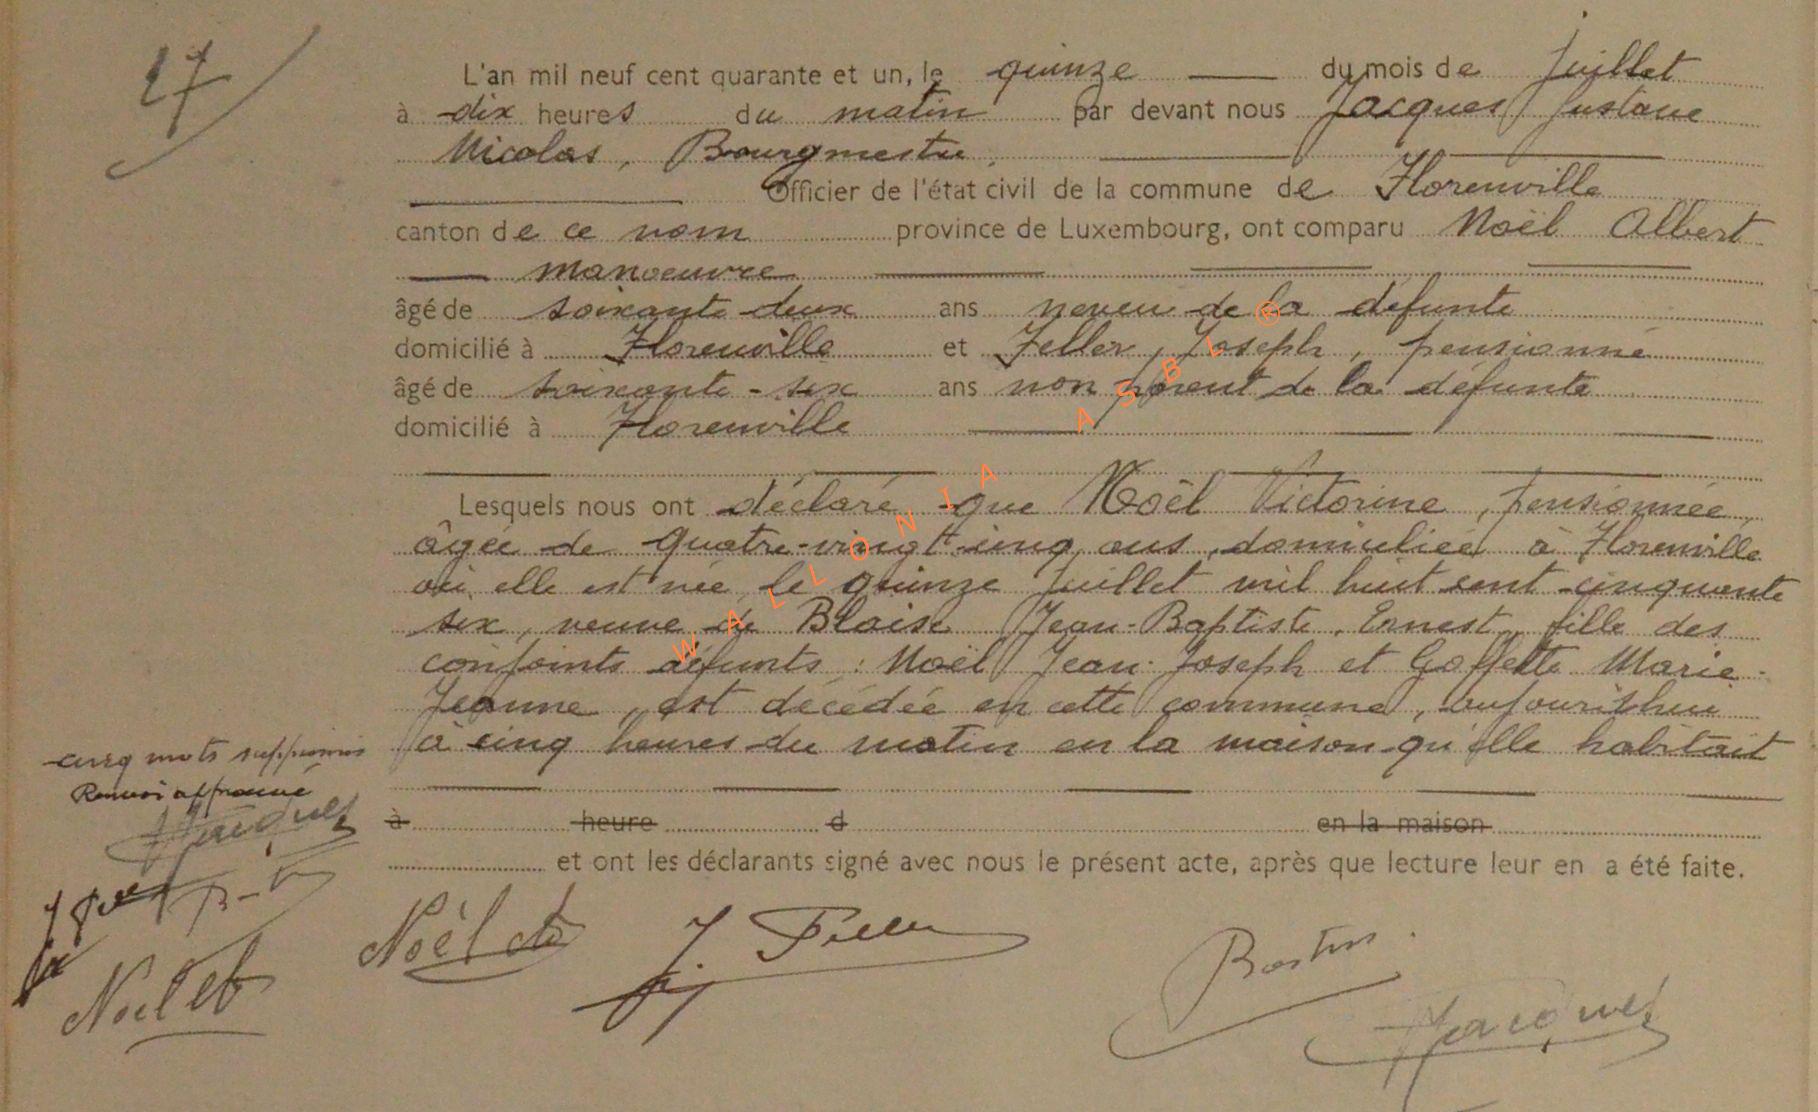 27
L'an mil neuf cent quarante et un, le quinze du mois de Juillet
à dix heures du matin par devant nous Jacques Gustave
Nicolas, Bourgmestre,
Officier de l'état civil de la commune de Florenville
canton de ce nom province de Luxembourg, ont comparu Noël Albert
manoeuvre
âgé de soixante deux ans neveu de la défunte
domicilié à Florenville et Feller, Joseph, pensionné
âgé de soixante-six ans non parent de la défunte
domicilié à Florenville
Lesquels nous ont déclaré que Noël Victorine, pensionnée,
âgée de quatre-vingt-cinq ans, domiciliée à Florenville
où elle est née le quinze Juillet mil huit cent cinquante
six, veuve de Blaise Jean-Baptiste, Ernest, fille des
conjoints défunts : Noël Jean-Joseph et Goffette Marie-
Jeanne, est décédée en cette commune, aujourd'hui
à cinq heures du matin en la maison qu'elle habitait
cinq mots supprimés
Renvoi approuvé
Jacques
à heure d en la maison
et ont les déclarants signé avec nous le présent acte, après que lecture leur en a été faite.
Noël
J. Feller
Jacques
WALLONIA ASBL ®